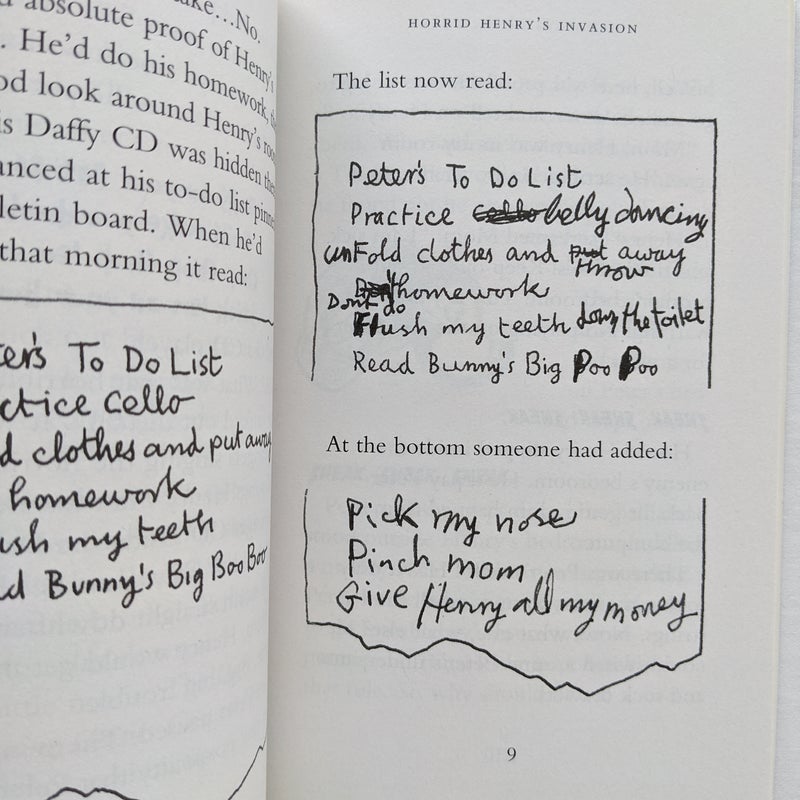 ake…No.
absolute proof of Henry's
. He'd do his homework,
od look around Henry's
is Daffy CD was hidden
anced at his to-do list
letin board. When he'd
that morning it read:
ter's To Do List
ctice Cello
d clothes and put away
homework
ush my teeth
ad Bunny's Big Boo Boo
HORRID HENRY'S INVASION
The list now read:
Peter's To Do List
Practice cello belly dancing
unFold clothes and put throw away
Don't do homework
Flush my teeth down the toilet
Read Bunny's Big Poo Poo
At the bottom someone had added:
Pick my nose
Pinch mom
Give Henry all my money
9